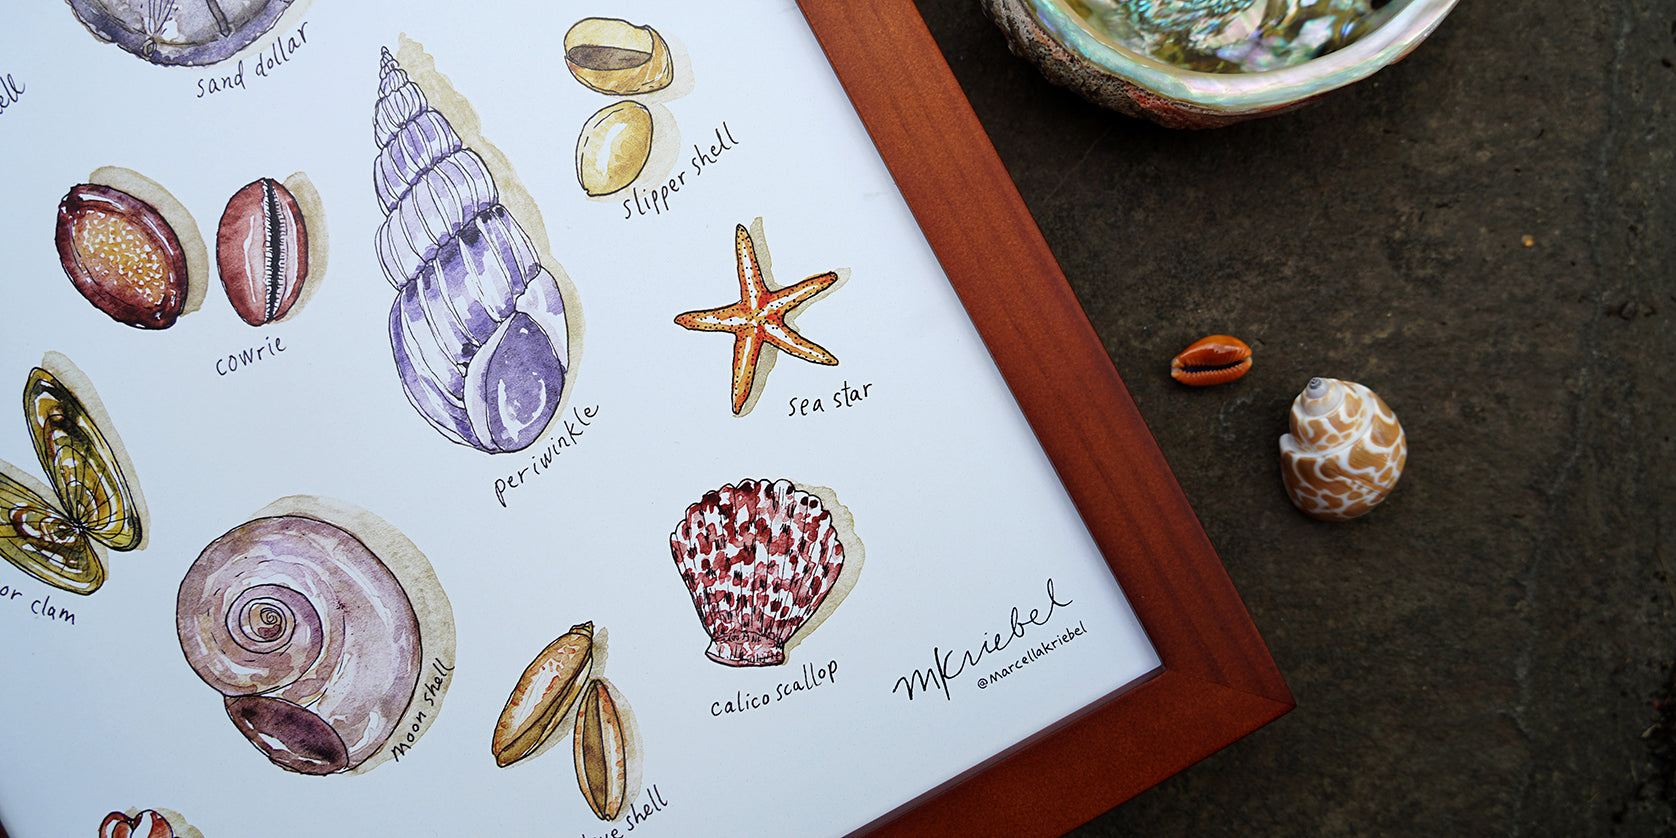 sand dollar
slipper shell
cowrie
sea star
periwinkle
clam
moon shell
calico scallop
MKriebel
@marcellakriebel
shell